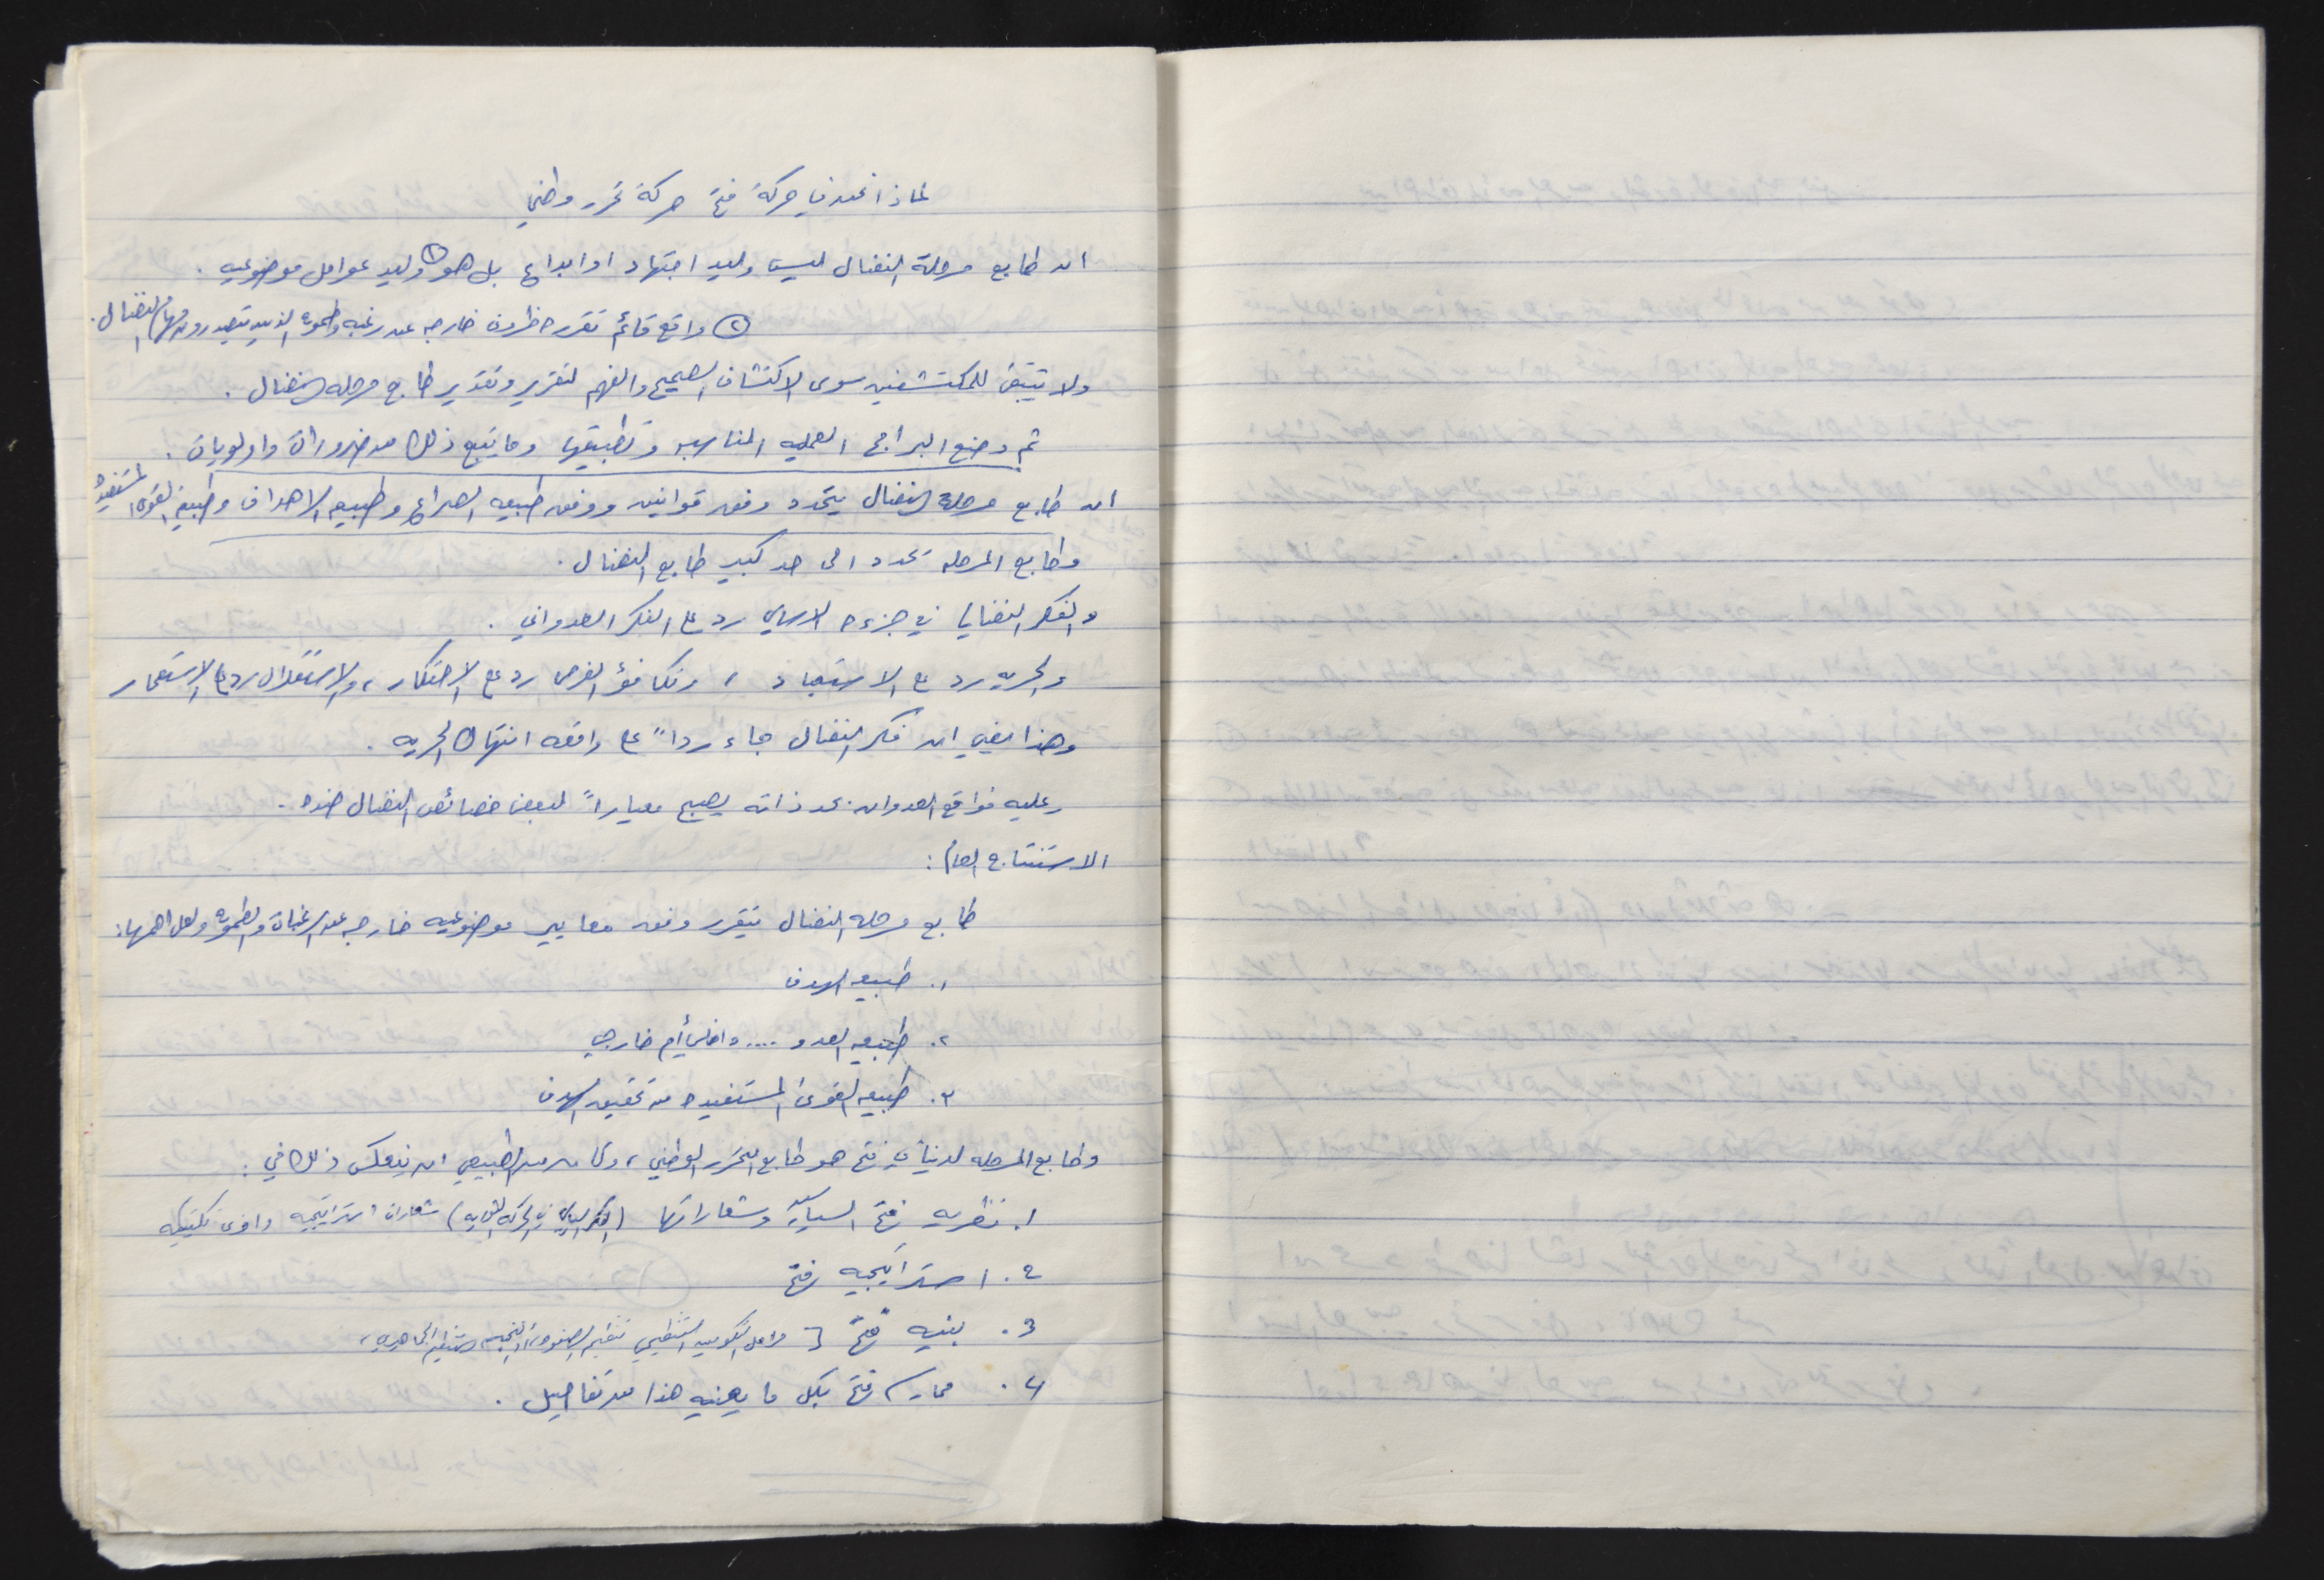 لماذا اعتمدت حركة فتح حركة تحرر وطني
ان طابع مرحلة النضال ليس وليد اجتهاد او ابداع بل هو ① وليد عوامل موضوعيه .
② واقع قائم تقرره ظروف خارجه عن رغبه وطموح الذين يتصدرون لمهام النضال .
ولا يتبقى للمكتشفين سوى الاكتشاف الصحيح والفهم لتقرير وتقدير طابع مرحله النضال .
ثم وضع البرامج العمليه المناسبه وتطبيقها وما يتبع ذلك من ضرورات واولويات .
ان طابع مرحلة النضال يتحدد وفق قوانين ووفق طبيعه الصراع وطبيعه الاهداف وطبيعه القوى المستفيده
وطابع المرحله تحدد الى حد كبير طابع النضال .
والفكر النضالي في جزءه الاساسي رد على الفكر العدواني .
والحريه رد على الاستعباد ، وتكافؤ الفرص رد على الاحتكار ، والاستقلال رد على الاستعمار
وهذا يعني ان فكر النضال جاء رداً على واقعه انتهاك الحريه .
وعليه فواقع العدوان بحد ذاته يصبح معياراً لبعض خصائص النضال ضده .
الاستنتاج العام :
طابع مرحله النضال يتقرر وفق معايير موضوعيه خارجه عن الرغبات والطموح ولعل اهمها :
١. طبيعه الهدف
٢. طبيعه العدو .... داخلي أم خارجي
٣. طبيعه القوى المستفيده من تحقيق الهدف
وطابع المرحله لدينا في فتح هو طابع التحرر الوطني ، وكان من الطبيعي ان ينعكس ذلك في :
١. نظريه فتح السياسيه وشعاراتها ( الفكر السياسي في الحركه الثوريه ) شعارات استراتيجيه واخرى تكتيكيه
2. استراتيجيه فتح
3. بنيه فتح مراحل التكوين التنظيمي تنظيم الصفوه ، النخبه ، تنظيم الجماهيريه ،
4. ممارسه فتح بكل ما يعنيه هذا من تفاصيل .